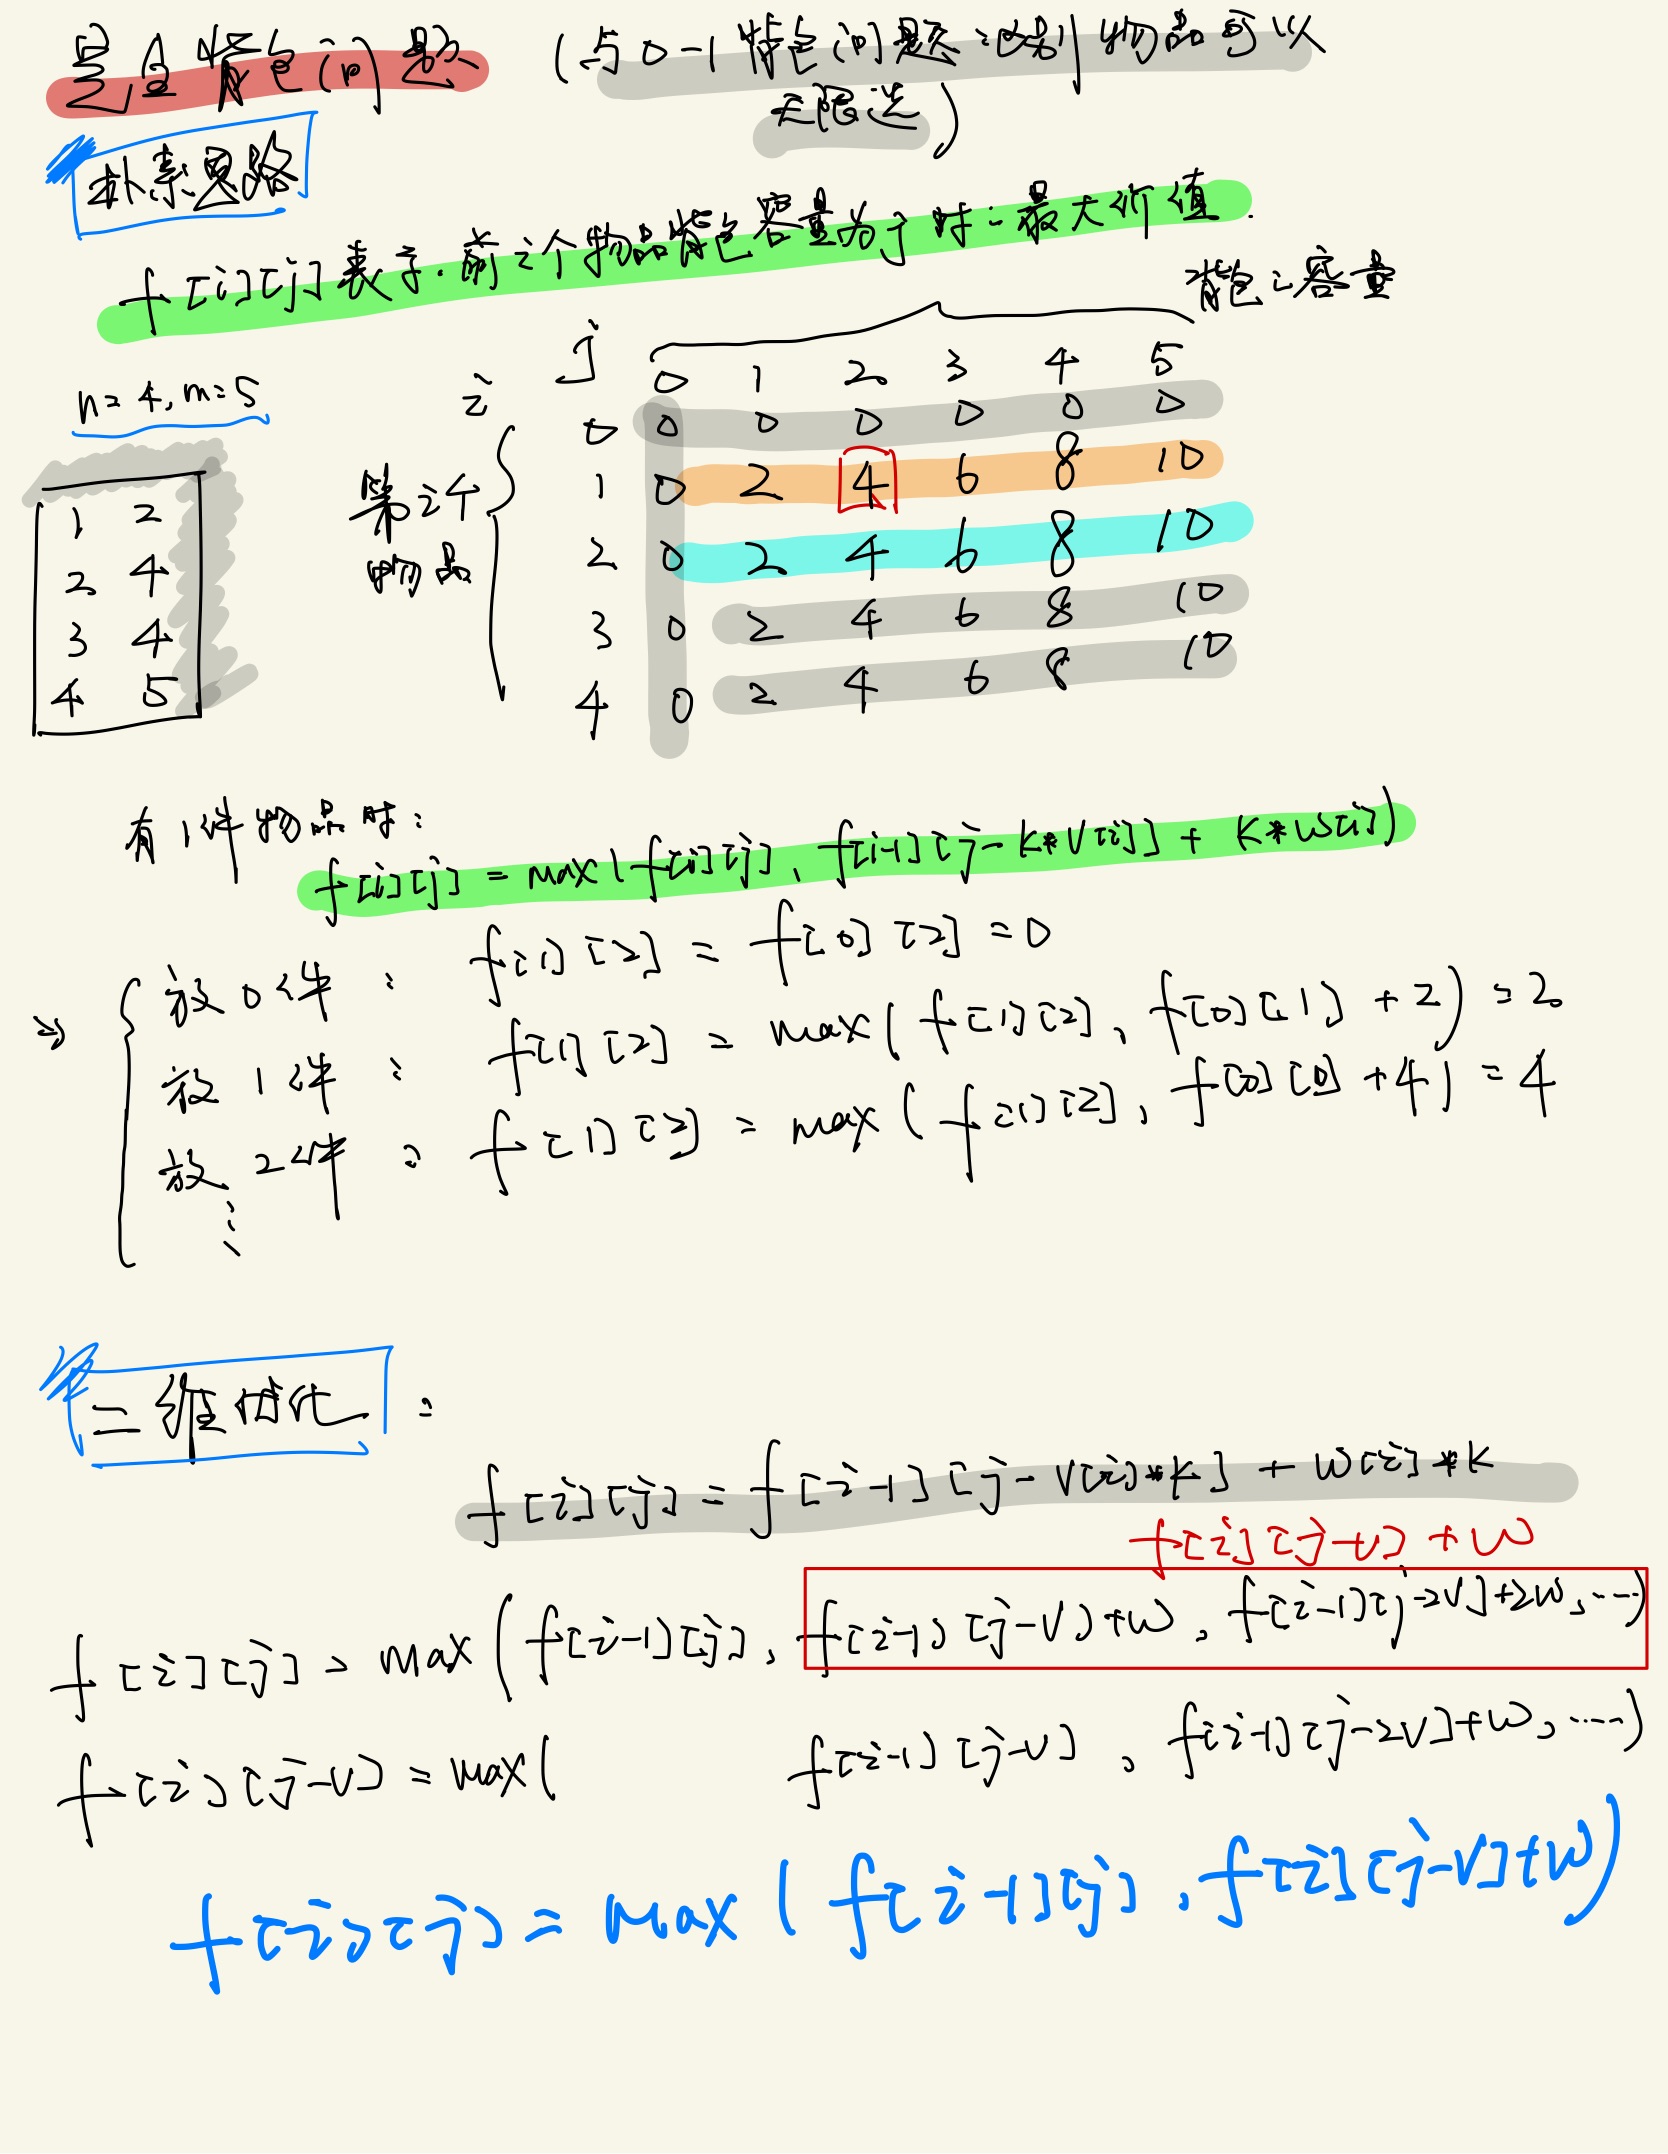 完全背包问题 (与0-1背包问题的区别物品可以
无限选)
朴素思路
f[i][j]表示前i个物品背包容量为j时的最大价值.
背包的容量
n=4, m=5
j 0 1 2 3 4 5
i
0 0 0 0 0 0 0
1 0 2 4 6 8 10
2 0 2 4 6 8 10
3 0 2 4 6 8 10
4 0 2 4 6 8 10
第i个
物品
1 2
2 4
3 4
4 5
有1件物品时:
f[i][j] = max(f[i][j], f[i-1][j-k*v[i]] + k*w[i])
⇒ 放0件: f[1][2] = f[0][2] = 0
放1件: f[1][2] = max(f[1][2], f[0][1]+2) = 2
放2件: f[1][2] = max(f[1][2], f[0][0]+4) = 4
⋮
二维优化:
f[i][j] = f[i-1][j-v[i]*k] + w[i]*k
f[i][j-v]+w
f[i][j] = max(f[i-1][j], f[i-1][j-v]+w, f[i-1][j-2v]+2w, ....)
f[i][j-v] = max( f[i-1][j-v], f[i-1][j-2v]+w, ....)
f[i][j] = max(f[i-1][j], f[i][j-v]+w)